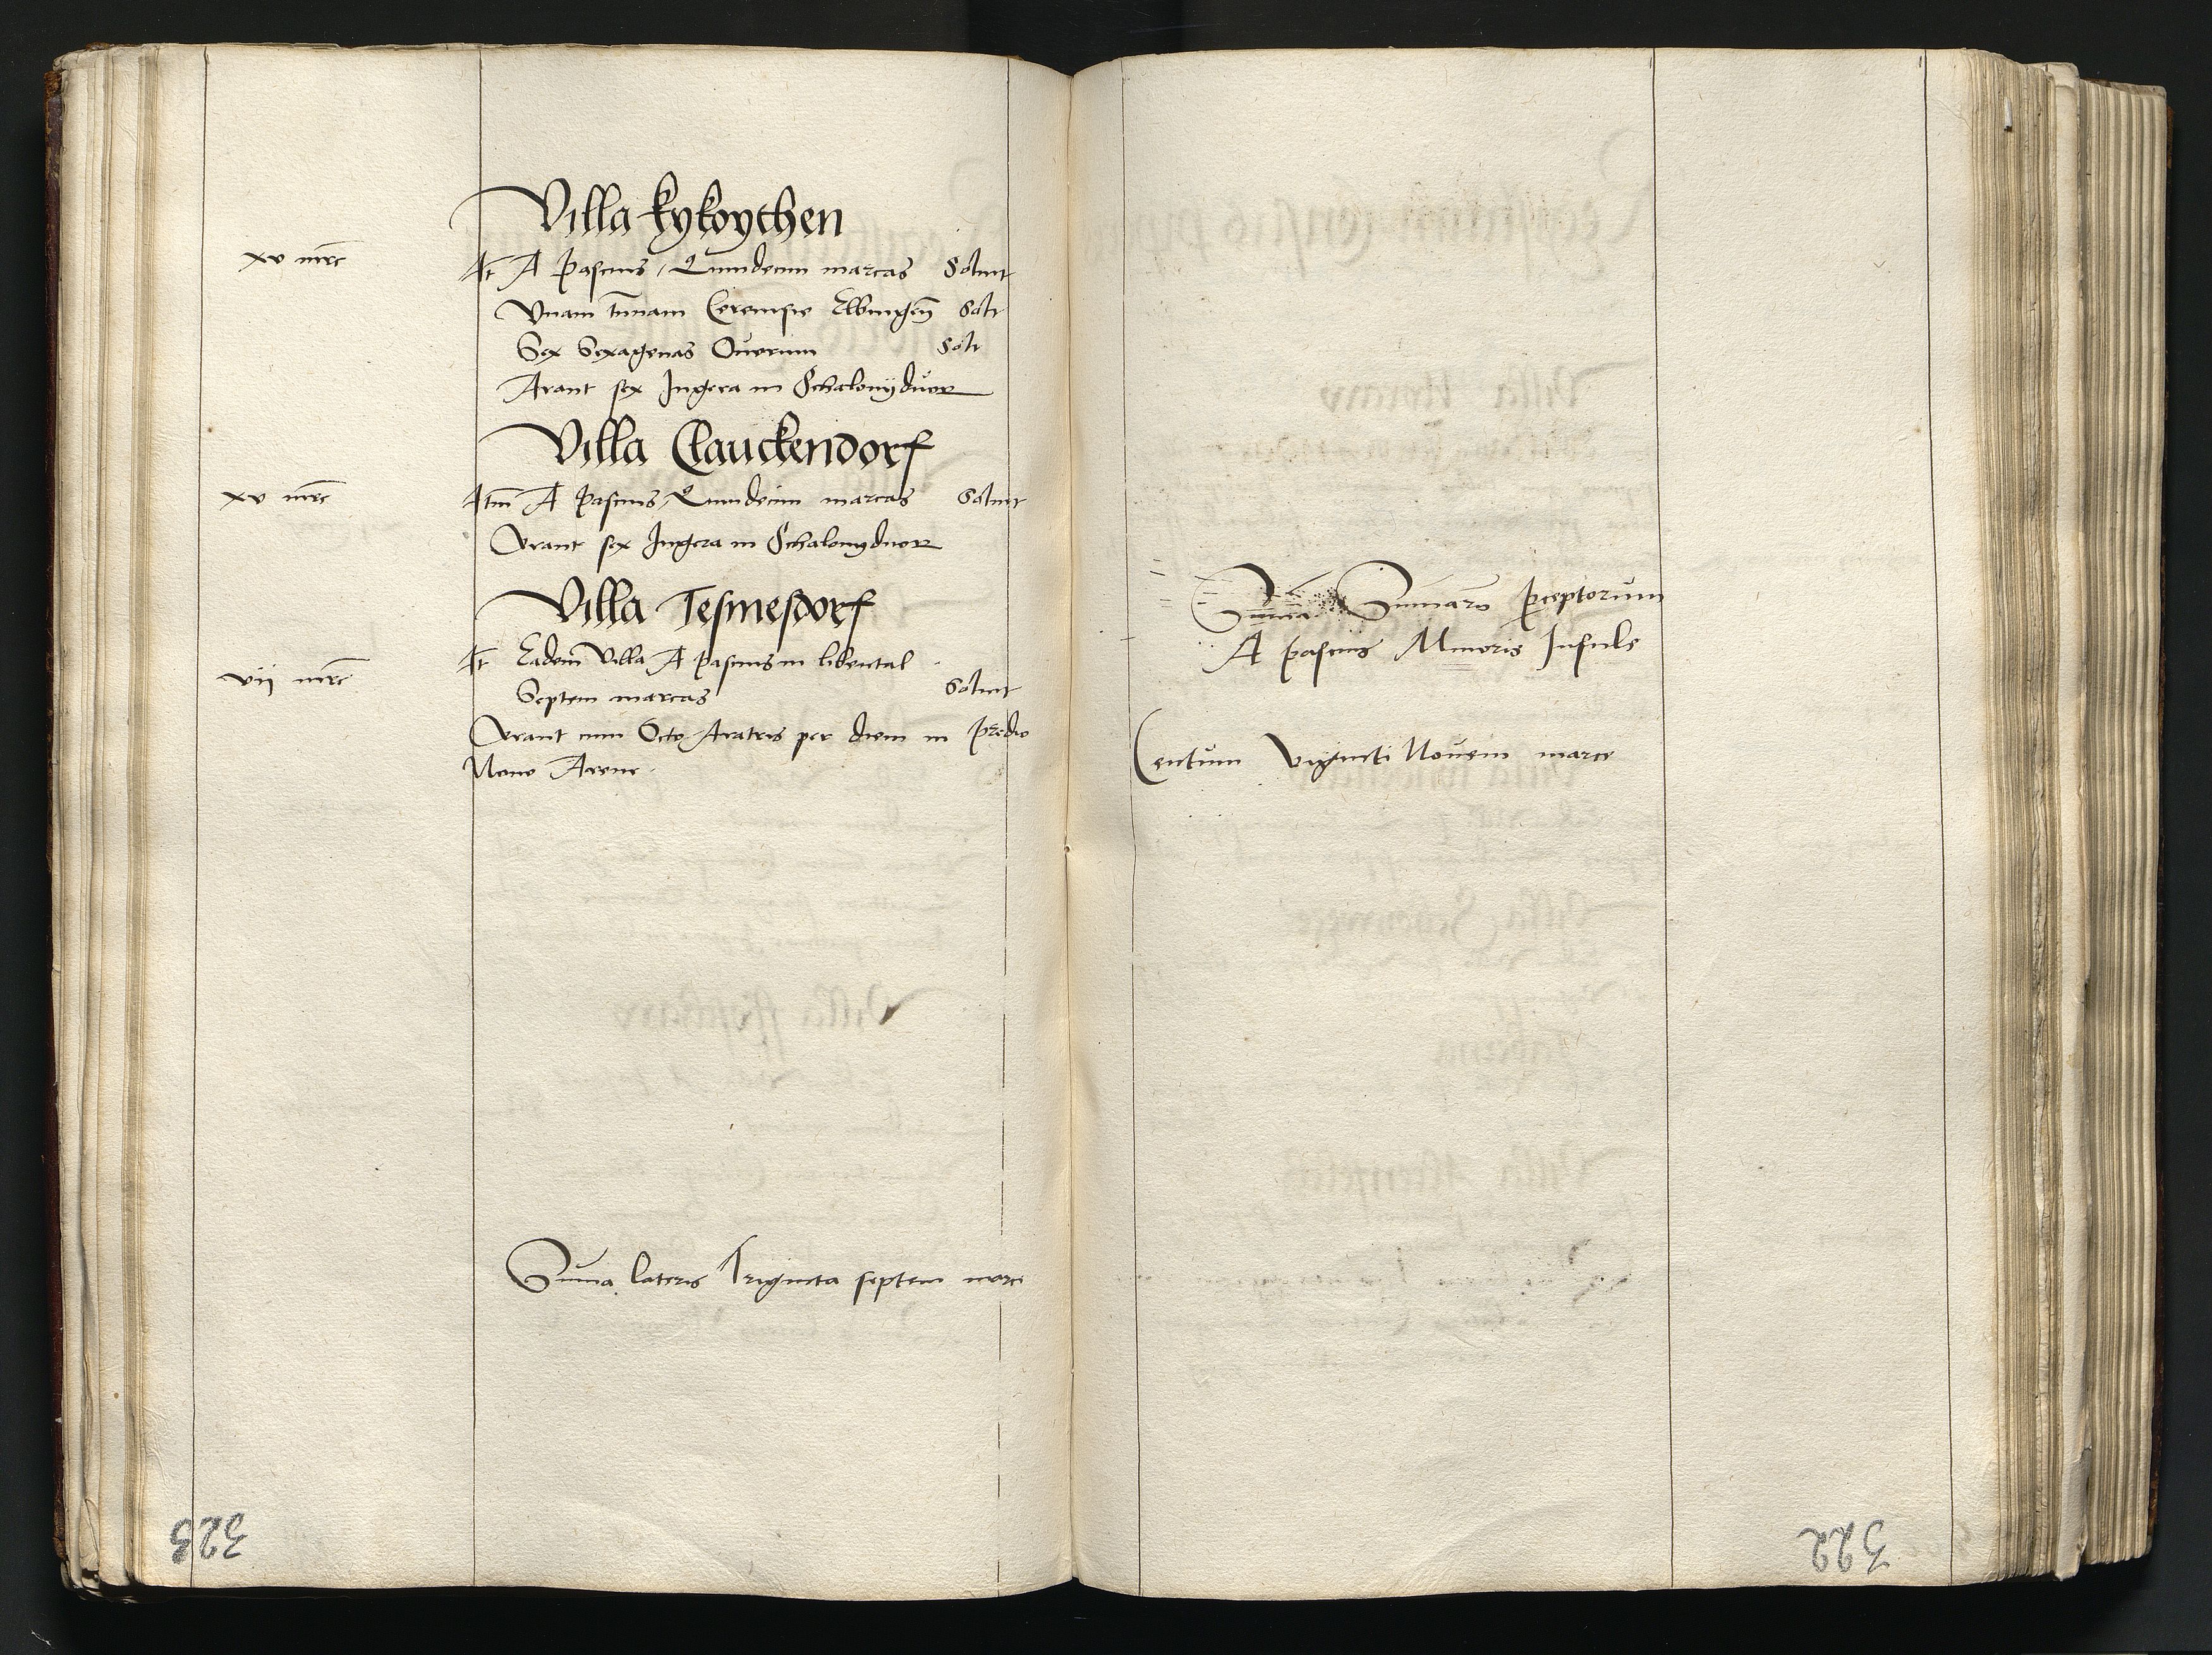 Villa kykoychen
xv mrc
It A pascuis / Quindecim marcas Soluit
Vnam tunnam Cereuisie Elbingen Solt
Sex Sexagenas Ouorum Solt
Arant sex Iugera in Schalonyduor
Villa Clauckendorf
xv mrc
Itm A pascuis, Quindecim marcas Soluit
Arant sex Iugera in Schalonyduor
Villa Tesmesdorf
It Eadem Villa A pascuis in libental
vij mrc
Septem marcas Soluit
Arant cum Octo Aratris per diem in predio
Nouo Arene
Suma lateris Triginta septem marc
323
Suma Sumaru perceptorum
A pascuis Minoris Insule
Centum viginti Nouem marce
322